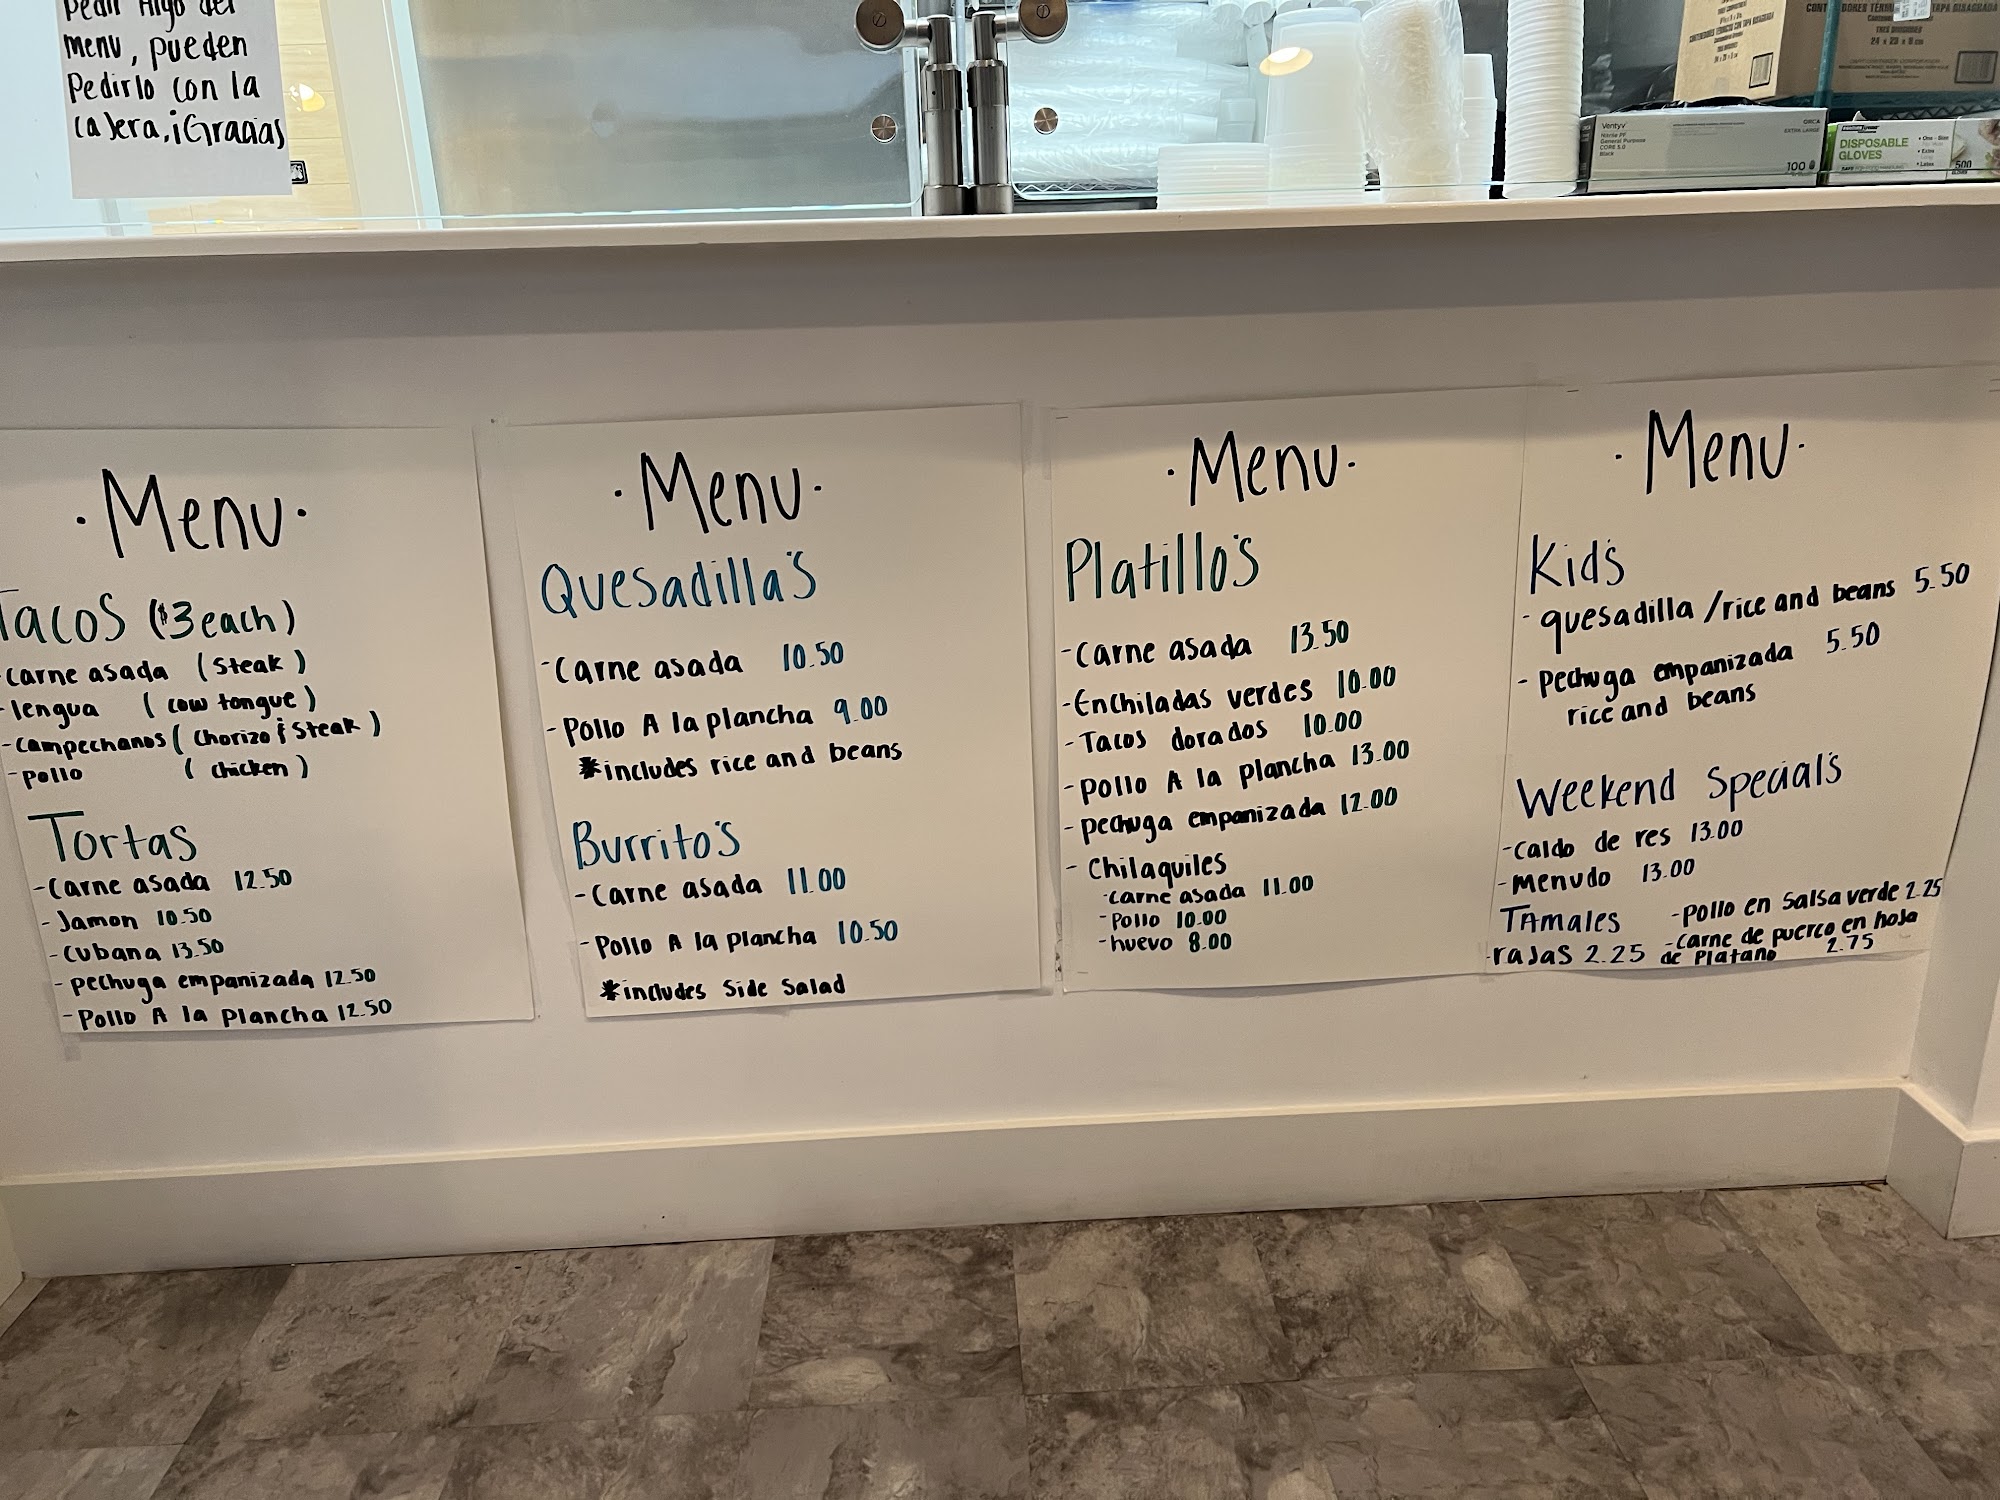 Pedir Algo del
menu, pueden
Pedirlo con la
cajera, ¡Gracias
Ventyv
Nitrile PF
General Purpose
CORE 3.0
Black
ORCA
EXTRA LARGE
100
DISPOSABLE
GLOVES
500
TRES DIVISIONES
24 x 23 x 8 cm
·Menu·
Tacos ($3 each)
-Carne asada (Steak)
-lengua (cow tongue)
-Campechanos (Chorizo & Steak)
-pollo (chicken)
Tortas
-Carne asada 12.50
-Jamon 10.50
-Cubana 13.50
-pechuga empanizada 12.50
-Pollo A la plancha 12.50
·Menu·
Quesadilla's
-Carne asada 10.50
-Pollo A la plancha 9.00
*includes rice and beans
Burrito's
-Carne asada 11.00
-Pollo A la plancha 10.50
*includes Side Salad
·Menu·
Platillo's
-Carne asada 13.50
-Enchiladas verdes 10.00
-Tacos dorados 10.00
-pollo A la plancha 13.00
-pechuga empanizada 12.00
-Chilaquiles
-carne asada 11.00
-Pollo 10.00
-huevo 8.00
·Menu·
Kid's
-quesadilla/rice and beans 5.50
-Pechuga empanizada 5.50
rice and beans
Weekend Special's
-Caldo de res 13.00
-Menudo 13.00
TAmales -Pollo en Salsa verde 2.25
-rajas 2.25 -Carne de puerco en hoja
de Platano 2.75